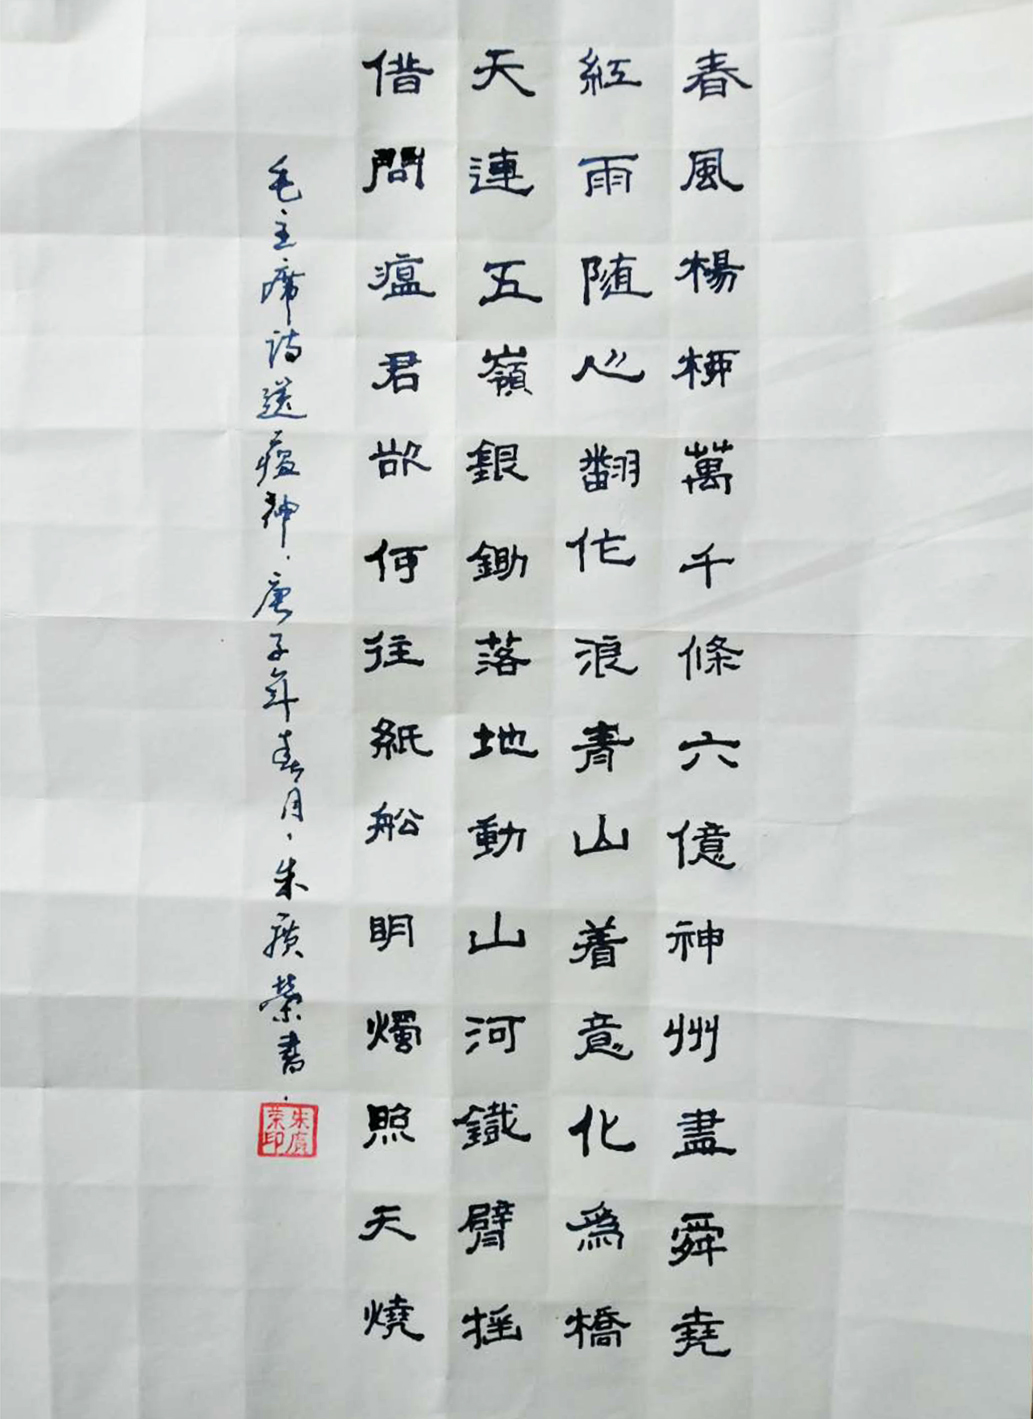 春風楊柳萬千條六億神州盡舜堯
紅雨随心翻作浪青山着意化為橋
天連五嶺銀鋤落地動山河鐵臂摇
借問瘟君欲何往紙船明燭照天燒
毛主席诗送瘟神.庚子年春月、朱广荣書.
朱广荣印